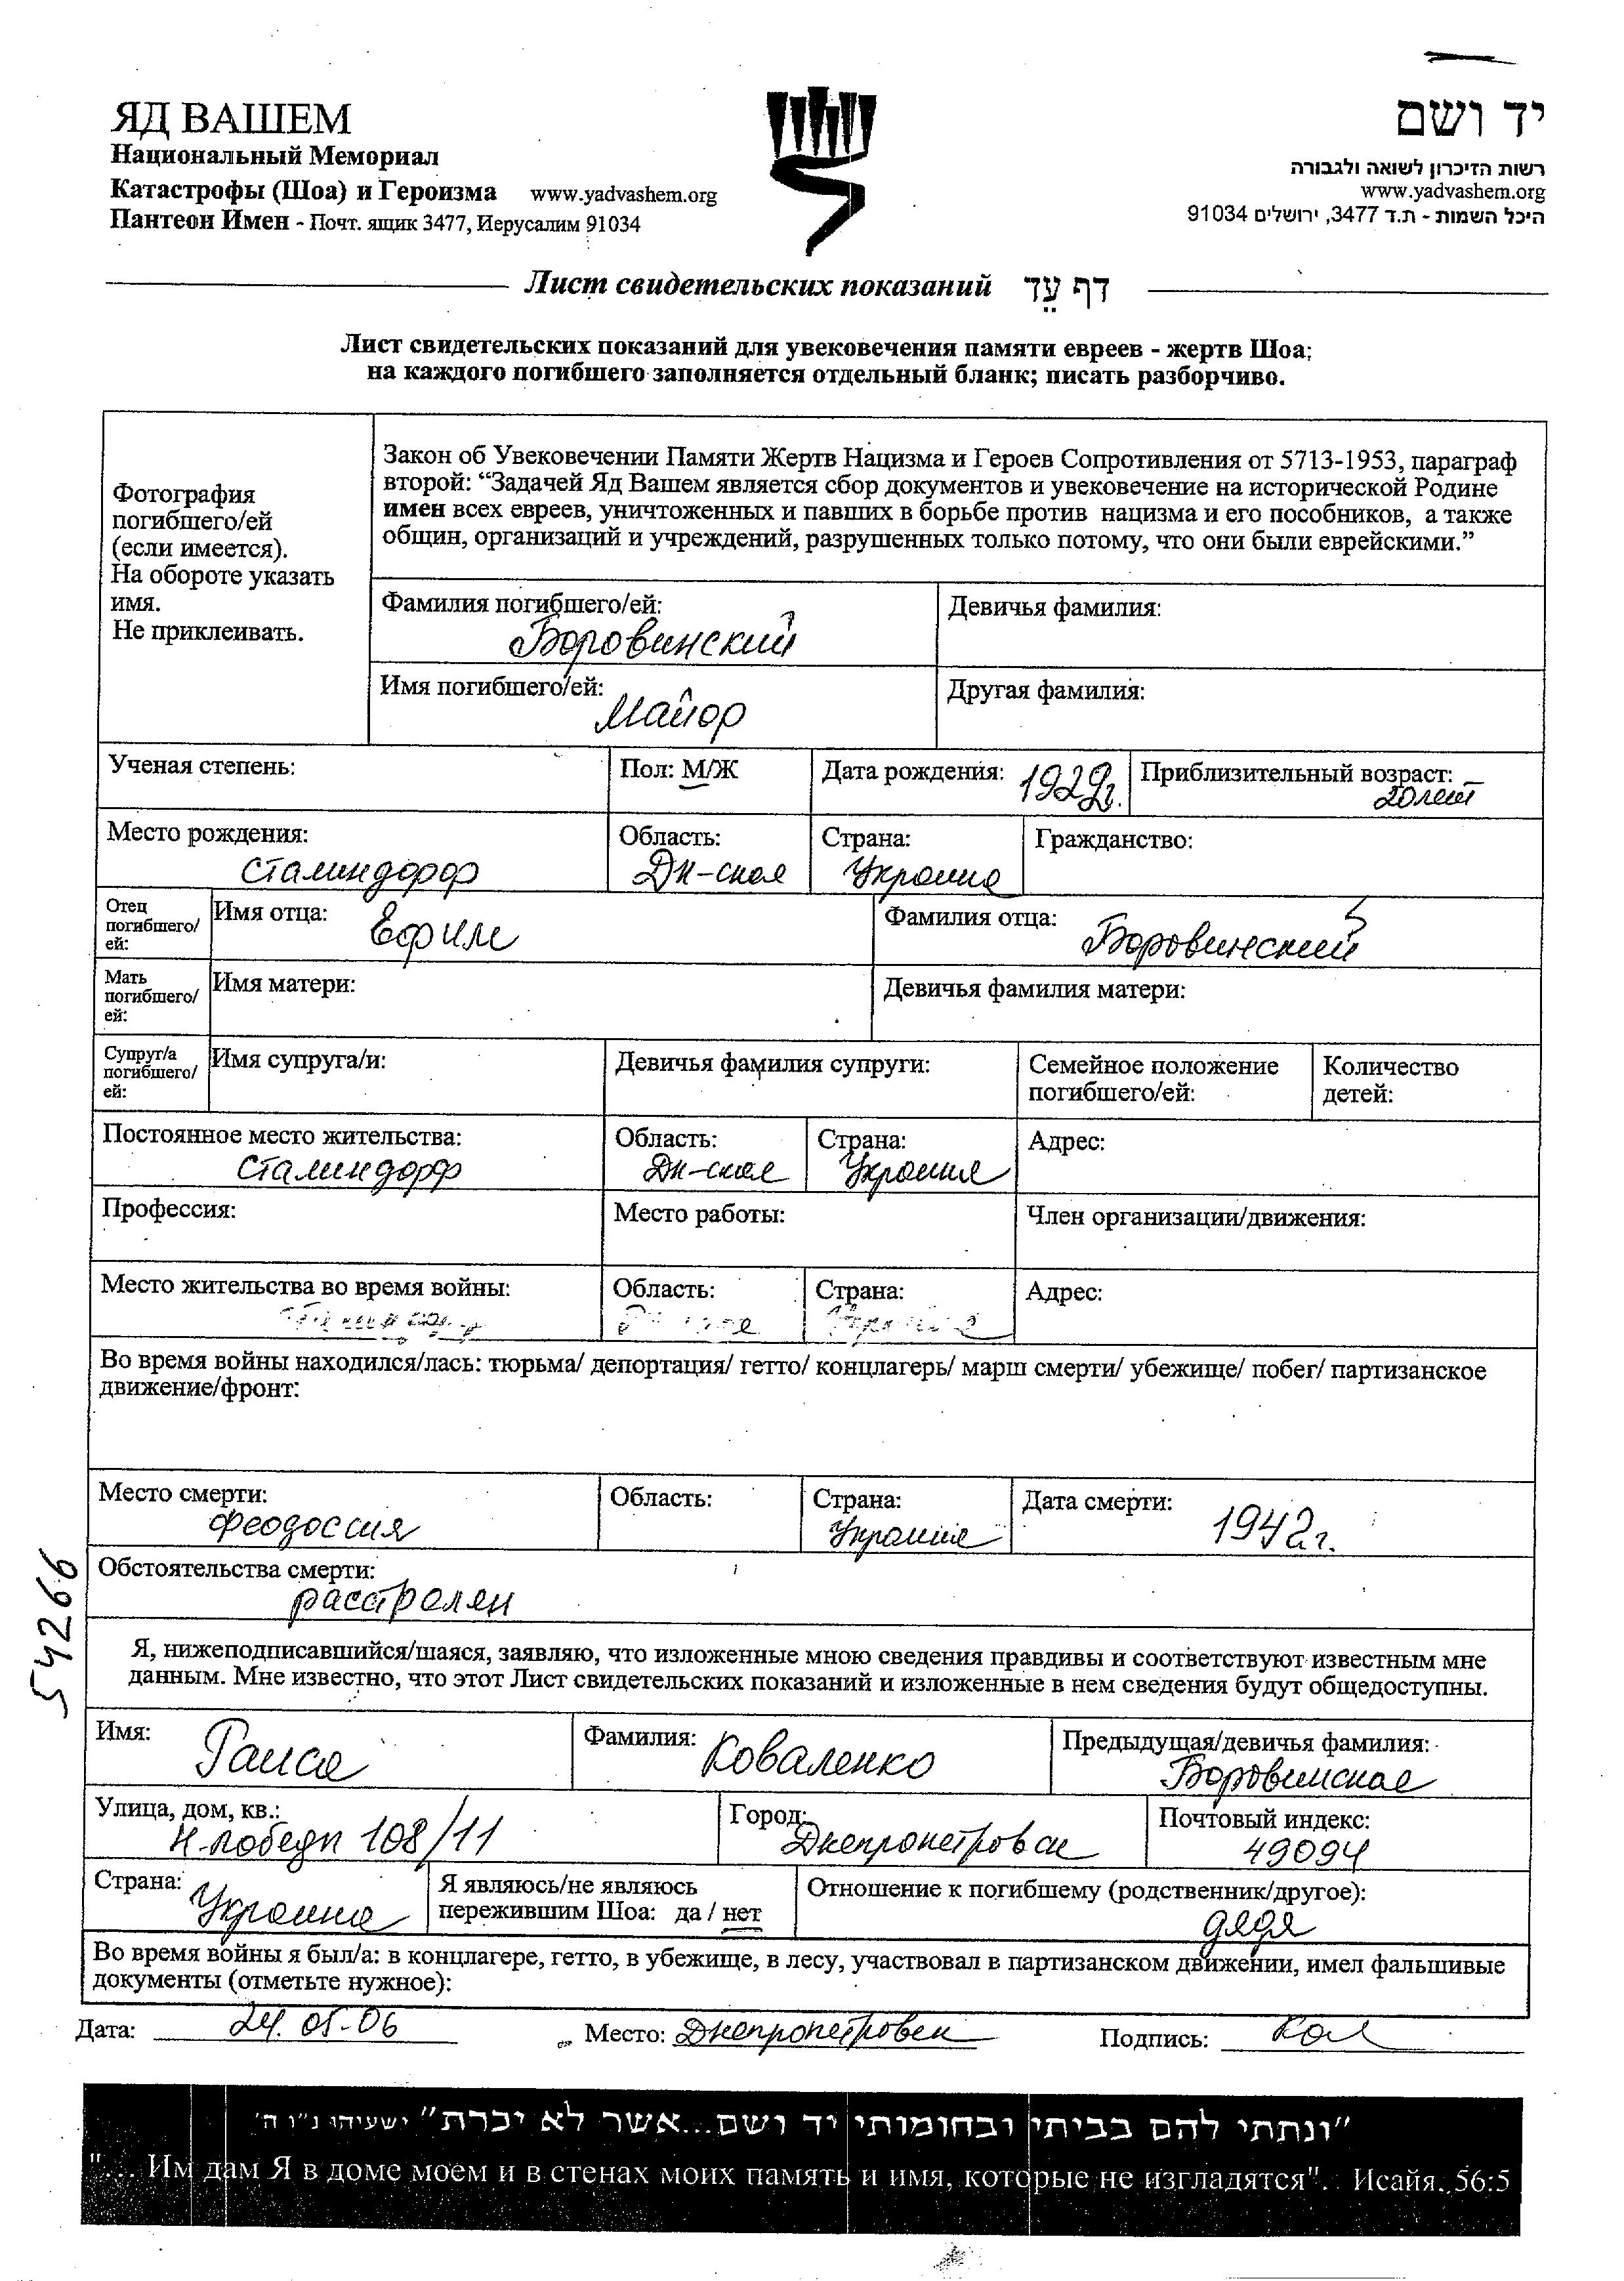 ЯД ВАШЕМ
Национальный Мемориал
Катастрофы (Шоа) и Героизма www.yadvashem.org
Пантеон Имен - Почт. ящик 3477, Иерусалим 91034
יד ושם
רשות הזיכרון לשואה ולגבורה
www.yadvashem.org
היכל השמות - ת.ד 3477, ירושלים 91034
Лист свидетельских показаний דף עֵד
Лист свидетельских показаний для увековечения памяти евреев - жертв Шоа;
на каждого погибшего заполняется отдельный бланк; писать разборчиво.
Фотография
погибшего/ей
(если имеется).
На обороте указать
имя.
Не приклеивать.
Закон об Увековечении Памяти Жертв Нацизма и Героев Сопротивления от 5713-1953, параграф
второй: “Задачей Яд Вашем является сбор документов и увековечение на исторической Родине
имен всех евреев, уничтоженных и павших в борьбе против нацизма и его пособников, а также
общин, организаций и учреждений, разрушенных только потому, что они были еврейскими.”
Фамилия погибшего/ей: Девичья фамилия:
Боровинский
Имя погибшего/ей: Другая фамилия:
Майор
Ученая степень: Пол: М/Ж Дата рождения: 1929г. Приблизительный возраст:
20 лет
Место рождения: Область: Страна: Гражданство:
Сталиндорф Дн-ская Украина
Отец
погибшего/
ей:
Имя отца: Ефим Фамилия отца: Боровинский
Мать
погибшего/
ей:
Имя матери: Девичья фамилия матери:
Супруг/а
погибшего/
ей:
Имя супруга/и: Девичья фамилия супруги: Семейное положение
погибшего/ей:
Количество
детей:
Постоянное место жительства: Область: Страна: Адрес:
Сталиндорф Дн-ская Украина
Профессия: Место работы: Член организации/движения:
Место жительства во время войны: Область: Страна: Адрес:
Во время войны находился/лась: тюрьма/ депортация/ гетто/ концлагерь/ марш смерти/ убежище/ побег/ партизанское
движение/фронт:
Место смерти: Область: Страна: Дата смерти: 1942г.
Феодоссия Украина
Обстоятельства смерти:
расстрелян
54266
Я, нижеподписавшийся/шаяся, заявляю, что изложенные мною сведения правдивы и соответствуют известным мне
данным. Мне известно, что этот Лист свидетельских показаний и изложенные в нем сведения будут общедоступны.
Имя: Раиса Фамилия: Коваленко Предыдущая/девичья фамилия:
Боровинская
Улица, дом, кв.: Город: Почтовый индекс:
Н.победы 108/11 Днепропетровск 49094
Страна: Украина Я являюсь/не являюсь
пережившим Шоа: да / нет
Отношение к погибшему (родственник/другое):
дядя
Во время войны я был/а: в концлагере, гетто, в убежище, в лесу, участвовал в партизанском движении, имел фальшивые
документы (отметьте нужное):
Дата: 24.05-06 Место: Днепропетровск Подпись:
"ונתתי להם בביתי ובחומותי יד ושם...אשר לא יכרת" ישעיהו נ"ו ה'
"... Им дам Я в доме моем и в стенах моих память и имя, которые не изгладятся". Исайя. 56:5